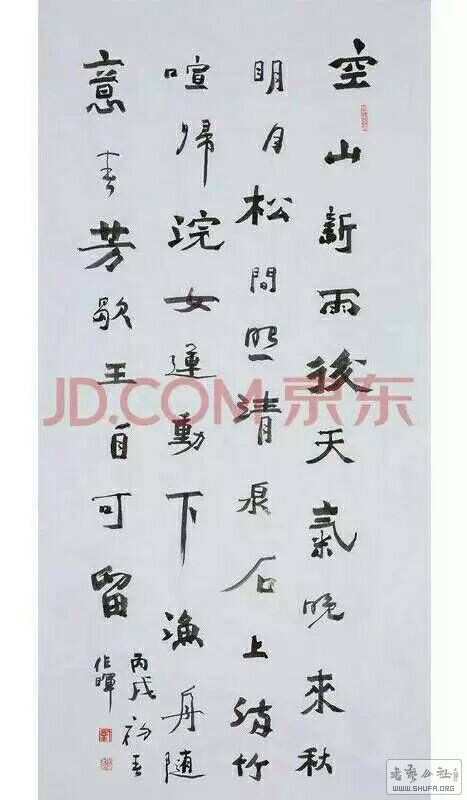 空山新雨後天氣晚來秋
明月松間照清泉石上流竹
喧歸浣女蓮動下漁舟隨
意春芳歇王自可留
丙戌初春
JD.COM 京东
书艺公社
WWW.SHUFA.ORG